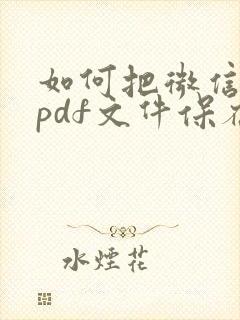 如何把微信
pdf文件保存
水煙花